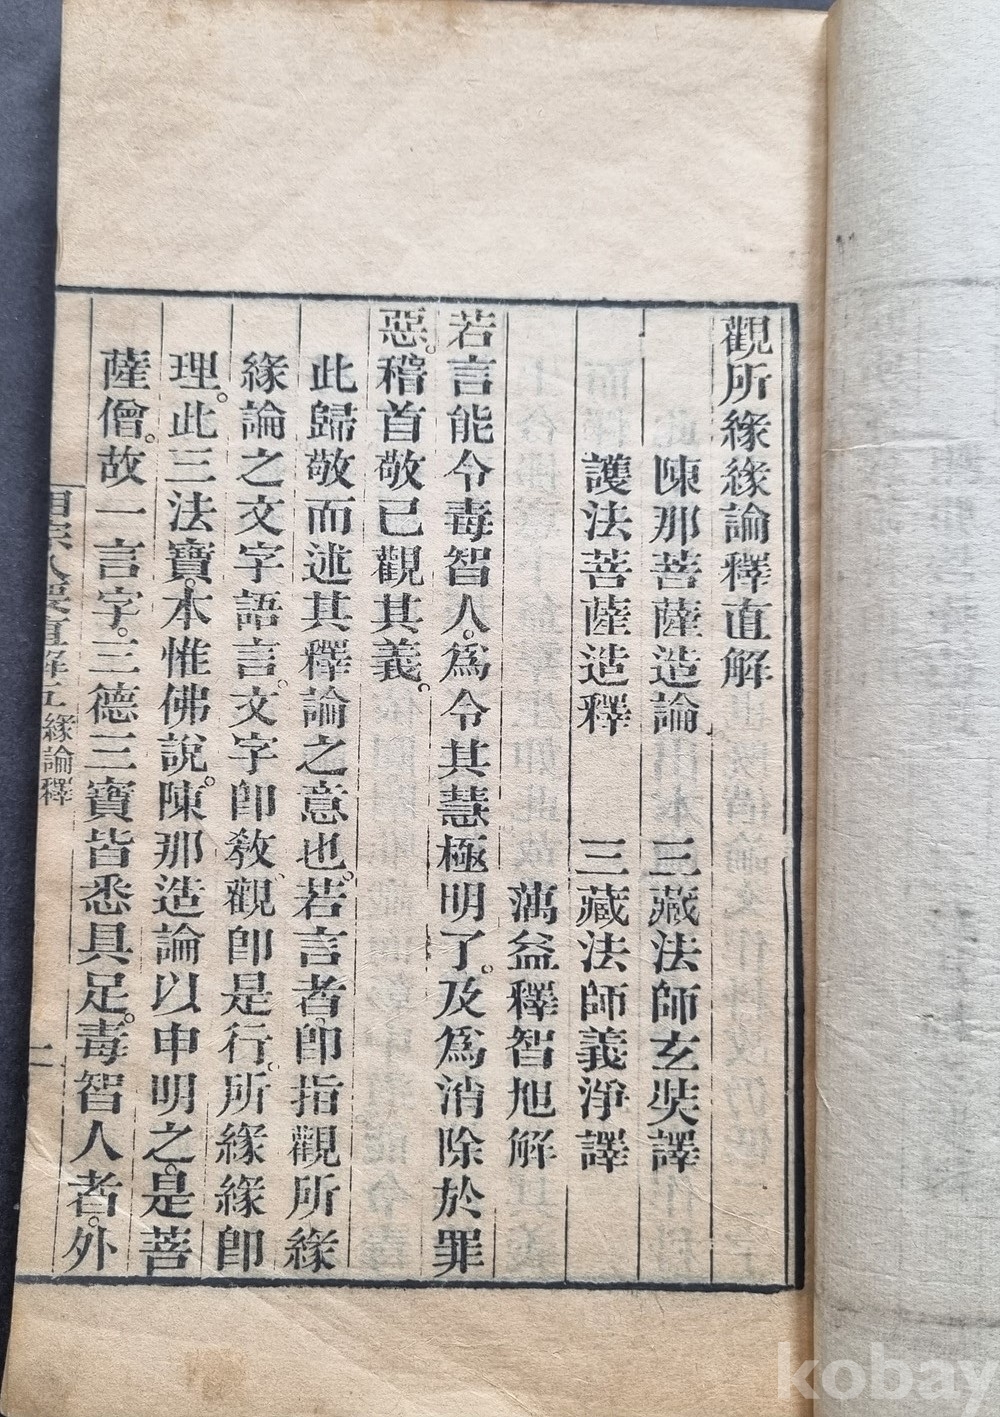 觀所緣緣論釋直解
陳那菩薩造論 三藏法師玄奘譯
護法菩薩造釋 三藏法師義淨譯
蕅益釋智旭解
若言能令毒智人。爲令其慧極明了。及爲消除於罪
惡。稽首敬已觀其義。
此歸敬而述其釋論之意也。若言者。卽指觀所緣
緣論之文字語言。文字卽敎。觀卽是行。所緣緣卽
理。此三法寶。本惟佛說。陳那造論以申明之。是菩
薩僧。故一言字。三德三寶皆悉具足。毒智人者。外
相宗八要直解五 緣論釋 二
kobay